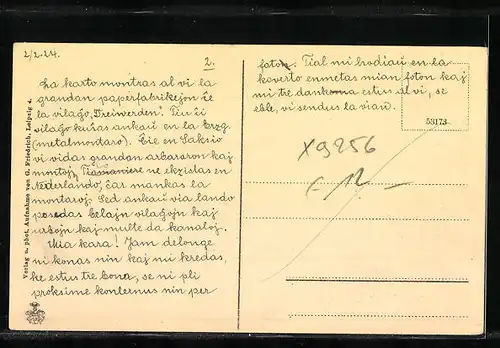 2/2.24.
2.
La karto montras al vi la
grandan paperfabrikejon ĉe
la vilaĝo „Dreiwerden“. Tiu ĉi
vilaĝo kuŝas ankaŭ en la Erzg.
(metalmontaro). Ĉie en Saksio
vi vidas grandan arbararon kaj
montojn, ne ekzistas en
Nederlando, ĉar mankas la
montaroj. Sed ankaŭ via lando
posedas belajn vilaĝojn kaj
urbojn kaj multe da kanaloj.
Mia kara! Jam delonge
ni konas nin kaj mi kredas,
ke estus tre bona, se ni pli
proksime konternus nin per
foton. Tial mi hodiaŭ en la
koverto enmetas mian foton kaj
mi tre dankema estus al vi, se
eble, vi sendus la vian.
58173
x9256
Verlag u. phot. Aufnahme von G. Friedrich, Leipzig 4.